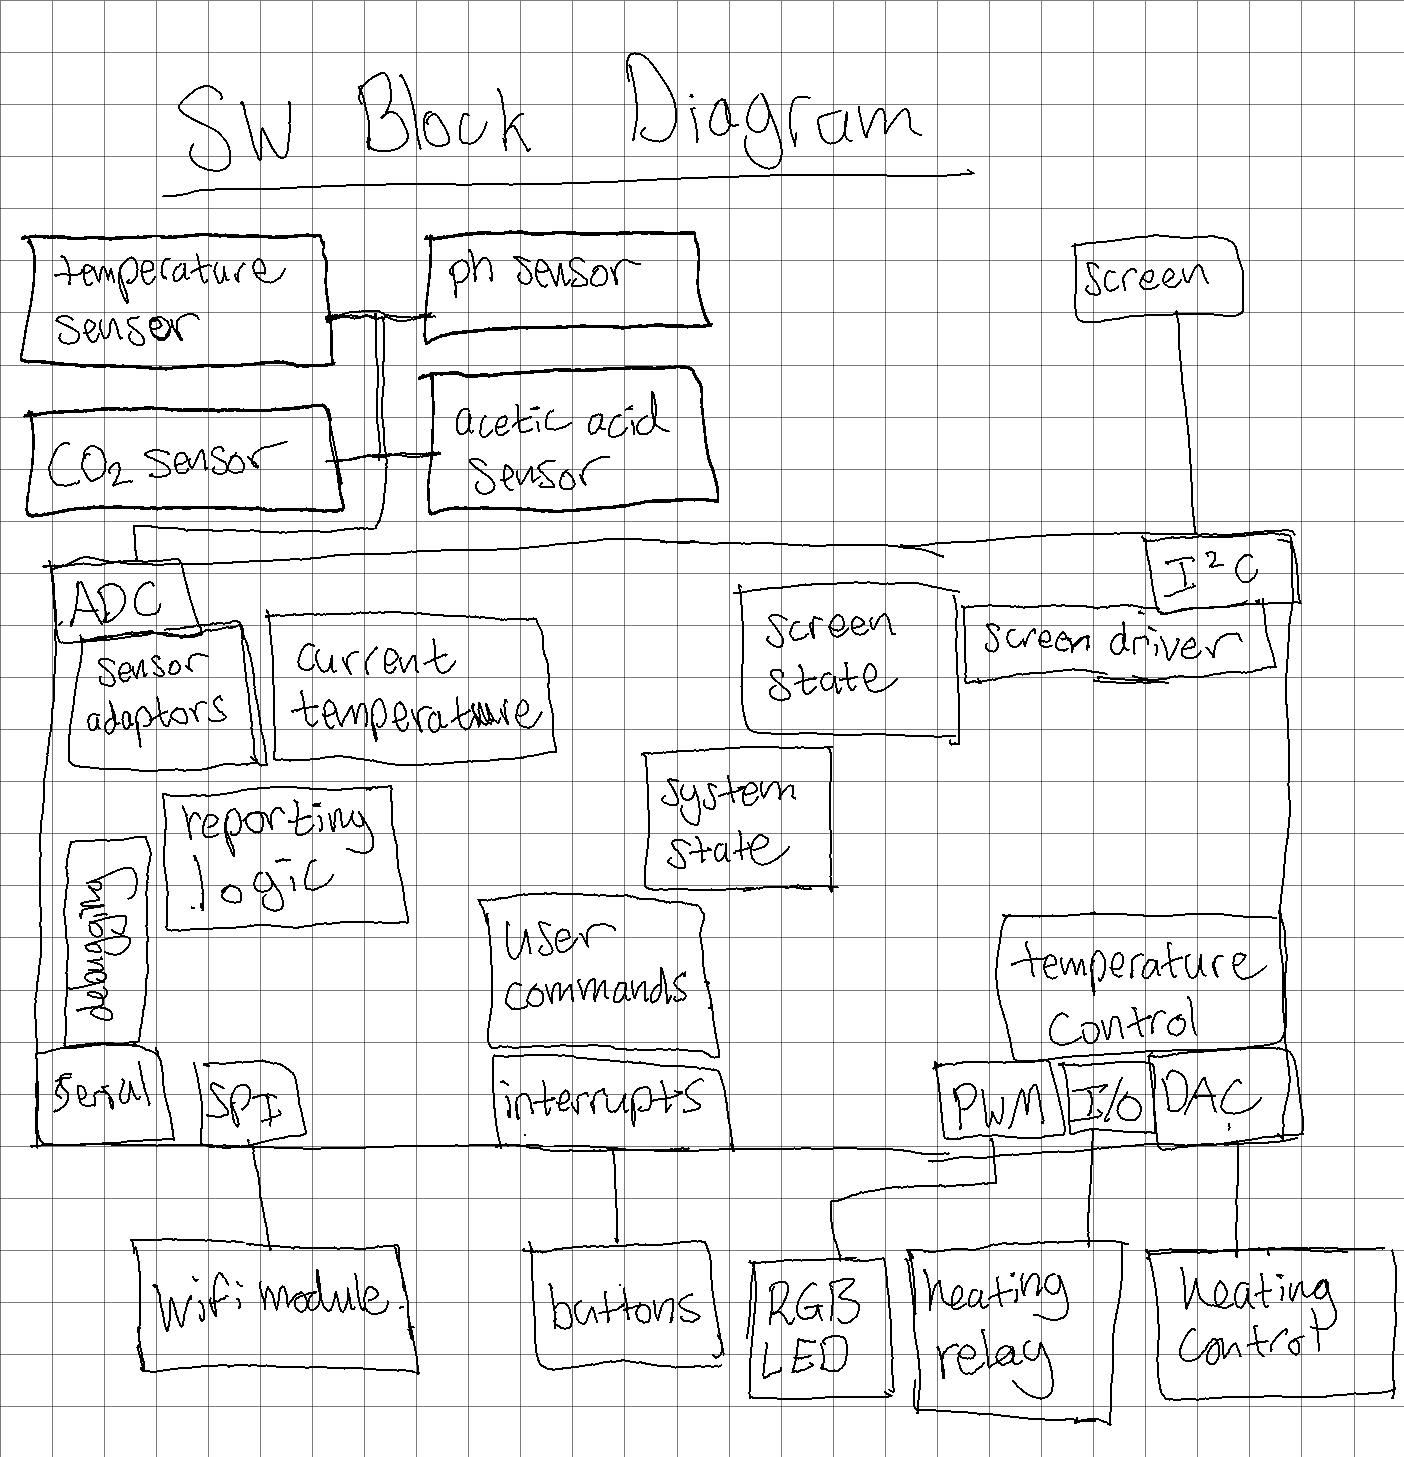 SW Block Diagram
temperature
sensor
ph sensor
screen
CO2 sensor
acetic acid
sensor
ADC
I²C
sensor
adaptors
current
temperature
screen
state
screen driver
reporting
logic
system
state
debugging
user
commands
temperature
control
serial
SPI
interrupts
PWM
I/O
DAC
wifi module
buttons
RGB
LED
heating
relay
heating
control